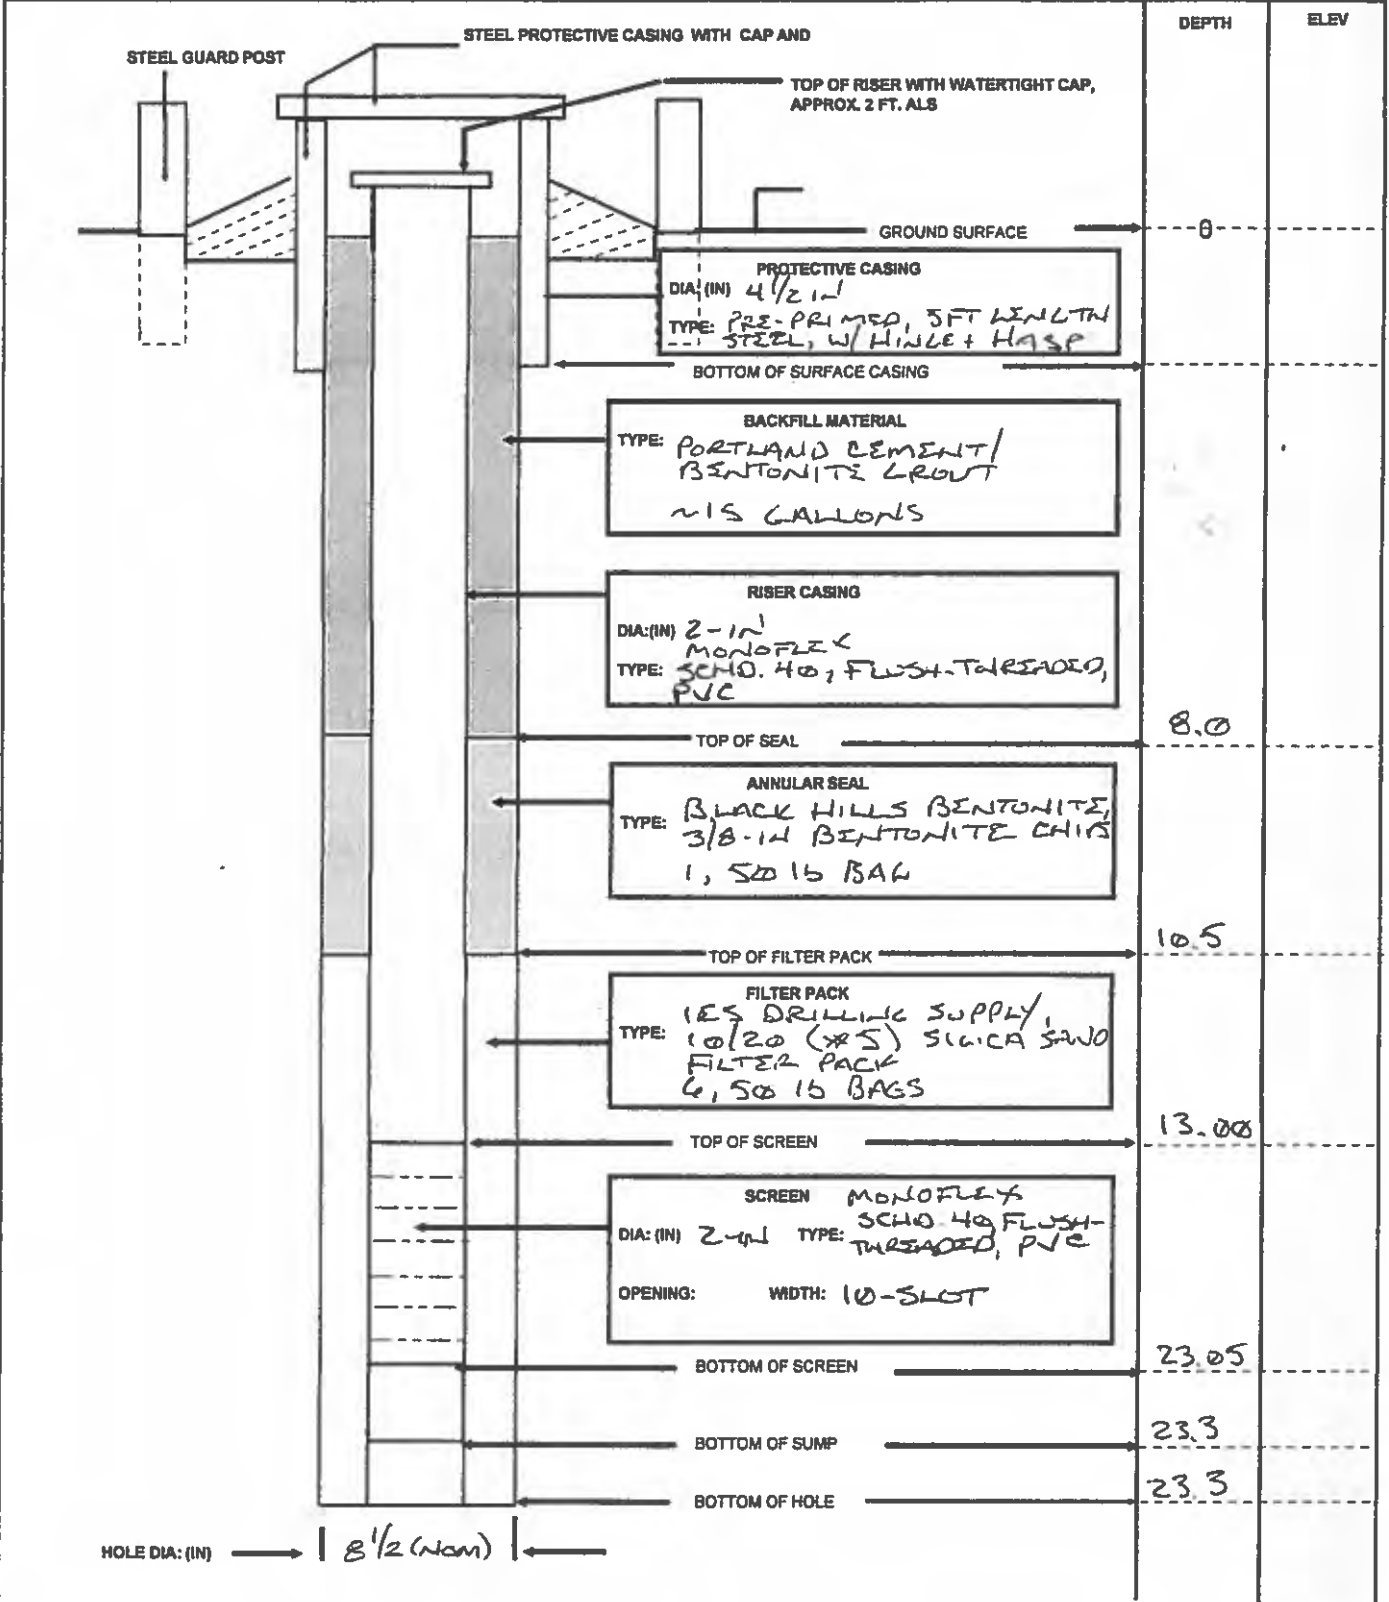 DEPTH
ELEV
STEEL PROTECTIVE CASING WITH CAP AND
STEEL GUARD POST
TOP OF RISER WITH WATERTIGHT CAP,
APPROX. 2 FT. ALS
GROUND SURFACE
0
PROTECTIVE CASING
DIA: (IN) 4 1/2 IN
TYPE: PRE-PRIMED, 5FT LENGTH
STEEL, W/ HINGE + HASP
BOTTOM OF SURFACE CASING
BACKFILL MATERIAL
TYPE: PORTLAND CEMENT/
BENTONITE GROUT
~15 GALLONS
RISER CASING
DIA:(IN) 2-IN
MONOFLEX
TYPE: SCHD. 40, FLUSH-THREADED,
PVC
TOP OF SEAL
8.0
ANNULAR SEAL
TYPE: BLACK HILLS BENTONITE,
3/8-IN BENTONITE CHIPS
1, 50 lb BAG
TOP OF FILTER PACK
10.5
FILTER PACK
IES DRILLING SUPPLY,
TYPE: 10/20 (#5) SILICA SAND
FILTER PACK
6, 50 lb BAGS
TOP OF SCREEN
13.00
SCREEN MONOFLEX
DIA: (IN) 2-IN TYPE: SCHD 40, FLUSH-
THREADED, PVC
OPENING: WIDTH: 10-SLOT
BOTTOM OF SCREEN
23.05
BOTTOM OF SUMP
23.3
BOTTOM OF HOLE
23.3
HOLE DIA: (IN) 8 1/2 (NOM)